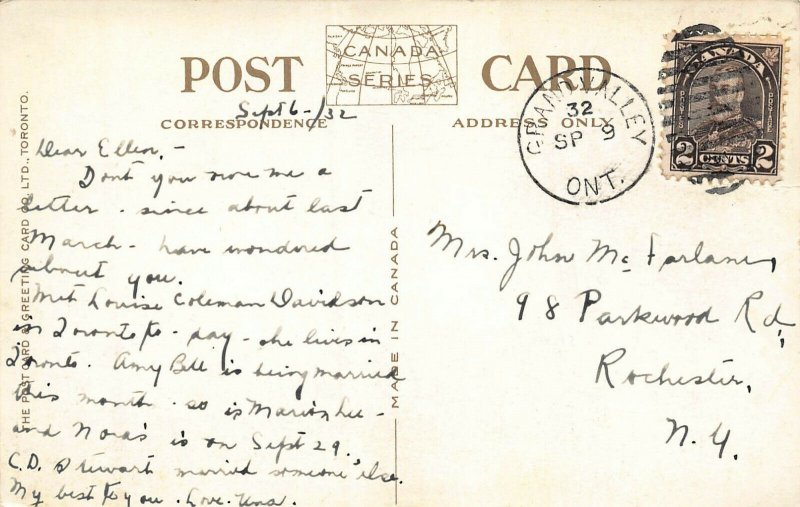 CANADA
SERIES
POST CARD
Sept 6-/32
CORRESPONDENCE
ADDRESS ONLY
GRAND VALLEY
32
SP 9
ONT.
CANADA
POSTES POSTAGE
2 CENTS 2
Dear Ellen,-
Don't you owe me a
letter - since about last
March - have wondered
about you.
Met Louise Coleman Davidson
in Toronto to-day - she lives in
Toronto. Amy Bell is being married
this month - so is Marion Lee -
and Nora's is on Sept 29.
C.D. Stewart married someone else.
My best to you. Love. Una.
Mrs. John McFarlane,
98 Parkwood Rd,
Rochester,
N.Y.
MADE IN CANADA
THE POST CARD & GREETING CARD CO. LTD., TORONTO.